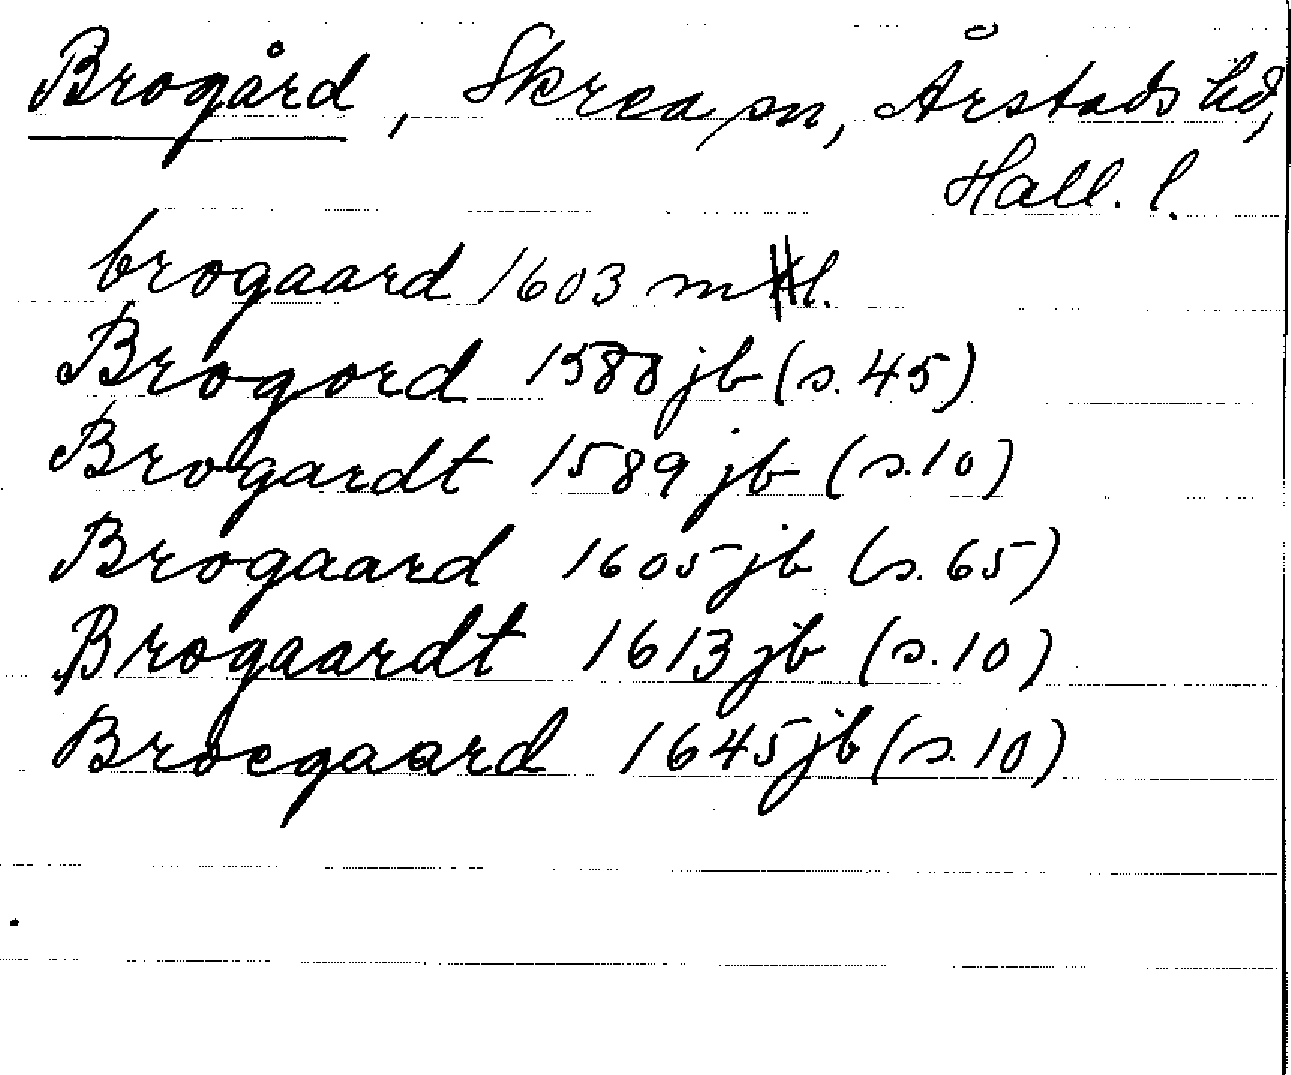 Brogård, Skrea sn, Årstads hd,
Hall. l.
brogaard 1603 m Hl.
Brogord 1580 jb (s. 45)
Brogardt 1589 jb (s. 10)
Brogaard 1605 jb (s. 65)
Brogaardt 1613 jb (s. 10)
Brocgaard 1645 jb (s. 10)